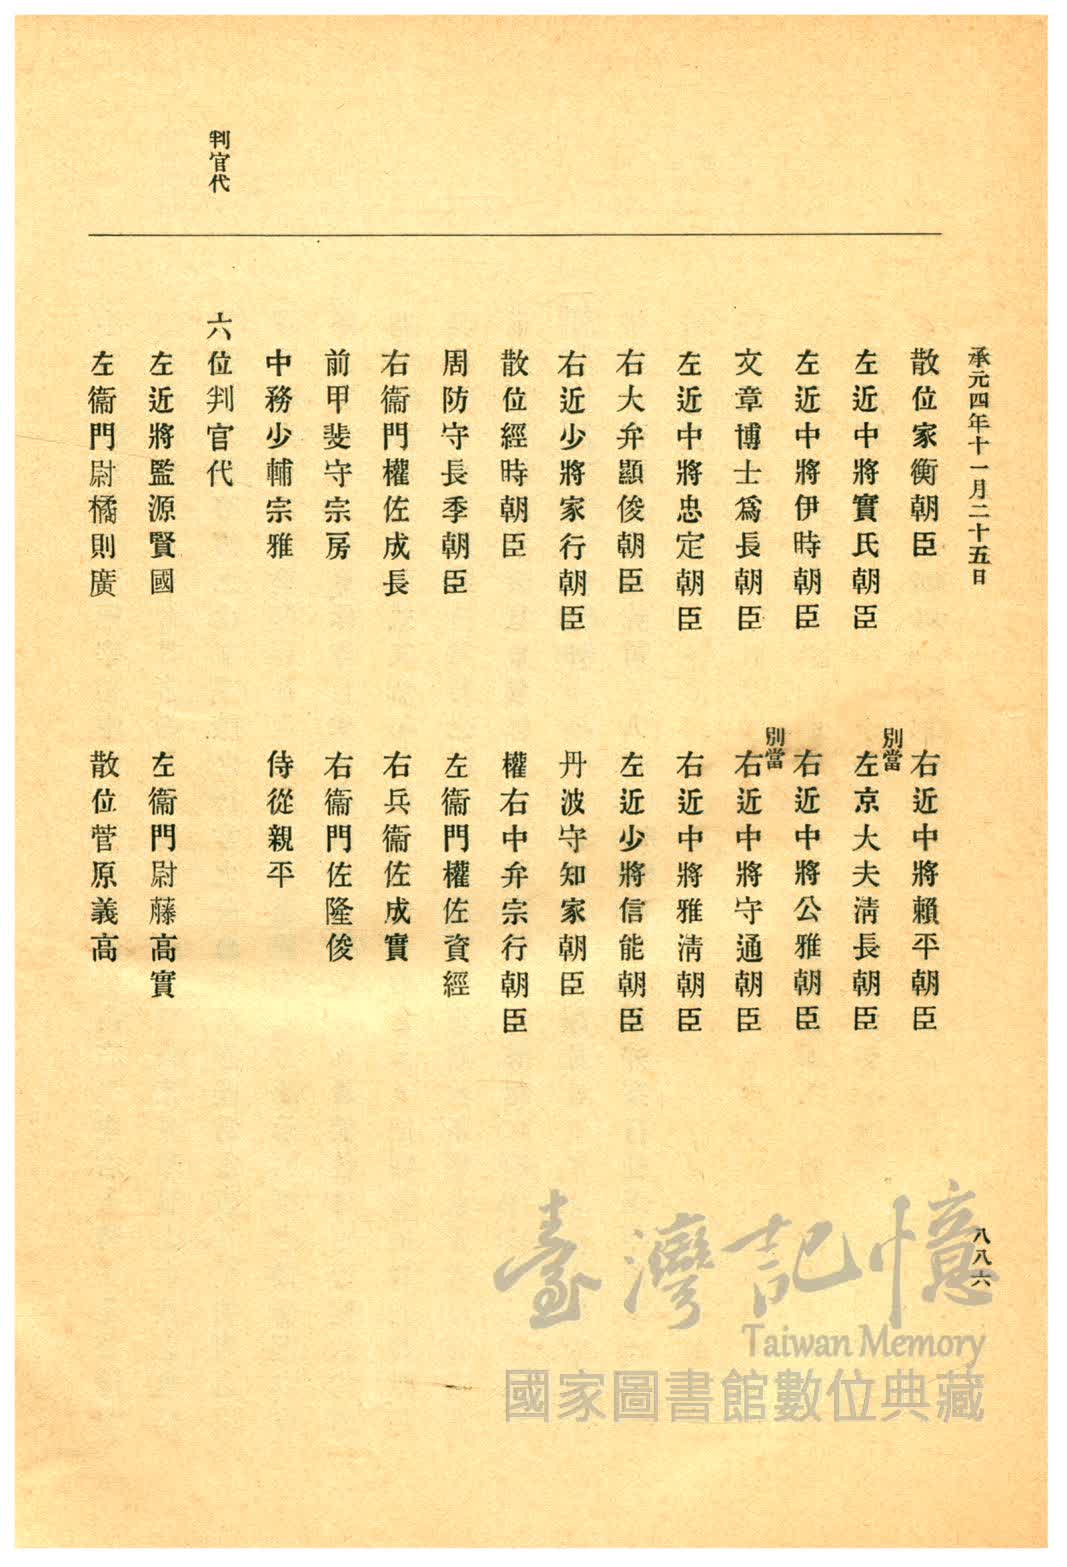 承元四年十一月二十五日
八八六
散位家衡朝臣
右近中將賴平朝臣
左近中將實氏朝臣
別當
左京大夫淸長朝臣
左近中將伊時朝臣
右近中將公雅朝臣
文章博士爲長朝臣
別當
右近中將守通朝臣
左近中將忠定朝臣
右近中將雅淸朝臣
右大弁顯俊朝臣
左近少將信能朝臣
右近少將家行朝臣
丹波守知家朝臣
散位經時朝臣
權右中弁宗行朝臣
周防守長季朝臣
左衞門權佐資經
右衞門權佐成長
右兵衞佐成實
前甲斐守宗房
右衞門佐隆俊
中務少輔宗雅
侍從親平
判官代
六位判官代
左近將監源賢國
左衞門尉藤高實
左衞門尉橘則廣
散位菅原義高
臺灣記憶
Taiwan Memory
國家圖書館數位典藏